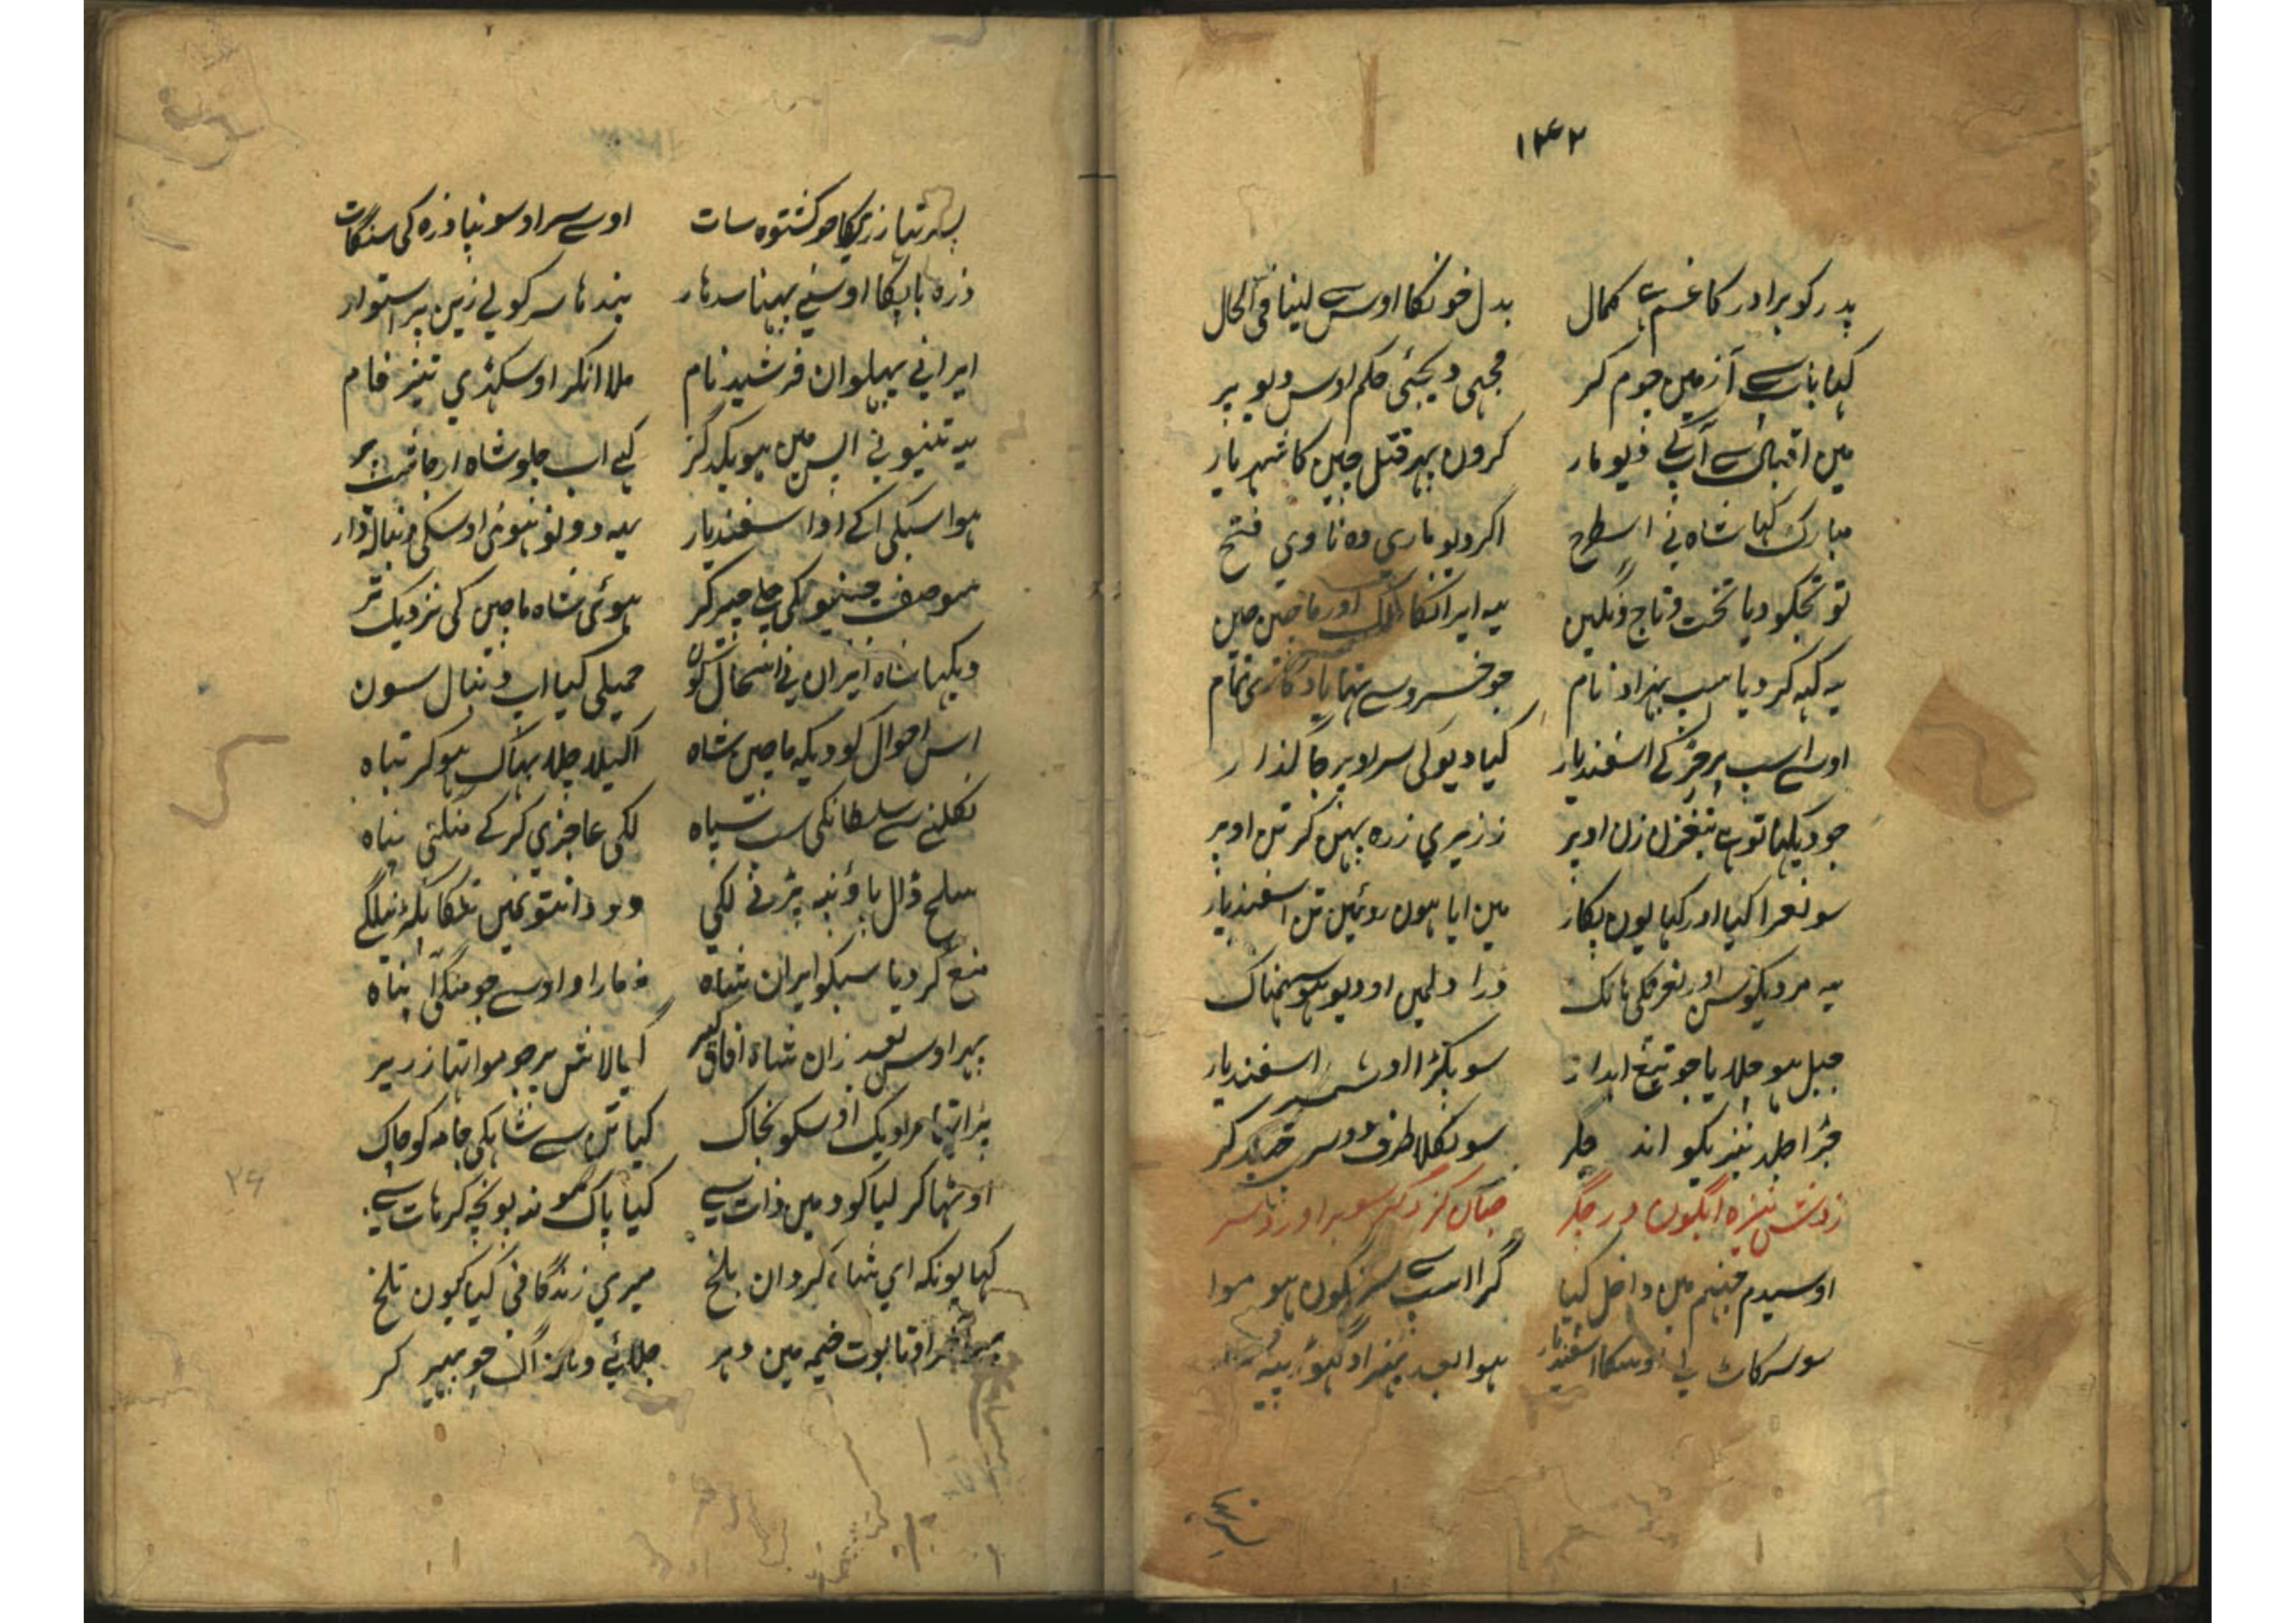 ۱۴۲
پدر کو برادر کا غم ہے کمال بدل خونکا اوس سے لینا فی الحال
کہا باپ سے آ زمین چوم کر مجہی دیجئی حکم اوس دیو پر
مین اقبال سے آپکے دیو مار کرون پہر قتل چین کا شہریار
مبارک کہا شاہ نی اسطرح اگر دیو ماری وہ ناوی فتح
تو تجکو دیا تخت و تاج و نگین یہ ایرانکا ملک اور ماچین چین
یہ کہہ کر دیا اسپ بہزاد نام جو خسرو سے تہا یادگاری تمام
اوسے اسپ پر چڑ کے اسفندیار کیا دیو کی سر اوپر جا گذار
جو دیکہا تو ہے زن اوپر زریری زرہ پہن کر تن اوپر
سو نعرا کیا اور کہا یون پکار مین ایا ہون روئین تن اسفندیار
یہ مردیکو سن اور نعرکی ہانک ڈرا دلمین او دیو ہو سہمناک
جبل ہو چلایا جو تیغ ابدار سو پکڑا او شمشیر اسفندیار
جڑا جلد نیزیکو اند جگر سو نکلا طرف دوسر چہید کر
زدش نیزہ انگون در جگر چنان کز دگر سو بر اورد سر
اوسیدم جہنم مین داخل کیا گرا اسپ سے سرنگون ہو موا
سو سر کاٹ لے اوسکا اسفندیار ہوا بعد
پسر تہا زریکا جو کشتوہ سات اوسے سر او سونپا زرہ کی سنگات
زرہ باپکا اوسنے پہنا سدہار بندہا سر کو لے زین پر استوار
ایرانی پہلوان فرشید نام ملا انکر اوسکہڑی تیز فام
یہ تینو نی اپس مین ہو یکدگر کہے اب چلو شاہ ارجاسپ پر
ہوا سبکی اگے او اسفندیار یہ دونو ہوئی اوسکی دنبالہ دار
سو صف چینیو کی چلے چیر کر ہوئی شاہ ماچین کی نزدیک تر
دیکہا شاہ ایران نی اسحال کون کیا اب دنبال سون
اس احوال کو دیکہہ ماچین شاہ اکیلا چلا بہاگ ہو کر تباہ
نکلنے سے سلطانکی سب سپاہ لگی عاجزی کر کے منگنی پناہ
سلح ڈال پاؤنپہ پڑنے لگی وو دانتو نمین تنکا پکڑنیلگے
منع کر دیا سبکو ایران شاہ نہ مارا و اوسے جو منگی آ پناہ
پہر اوس بعد زان شاہ افاق گیر گیا لاش پر جو موا تہا زریر
پڑا تہا مرا دیک اوسکو بخاک کیا تن سے شاہکی جامہ کو چاک
اوٹہا کر لیا گود مین ذات سے کیا پاک مونہ پونچہہ کر ہات سے
کہا یونکہ ای شاہ گردان بلخ میری زندگانی کیا کیون تلخ
تابوت خیمہ مین دہر جلائے وہان اگ جو بہیر کر
۲۶